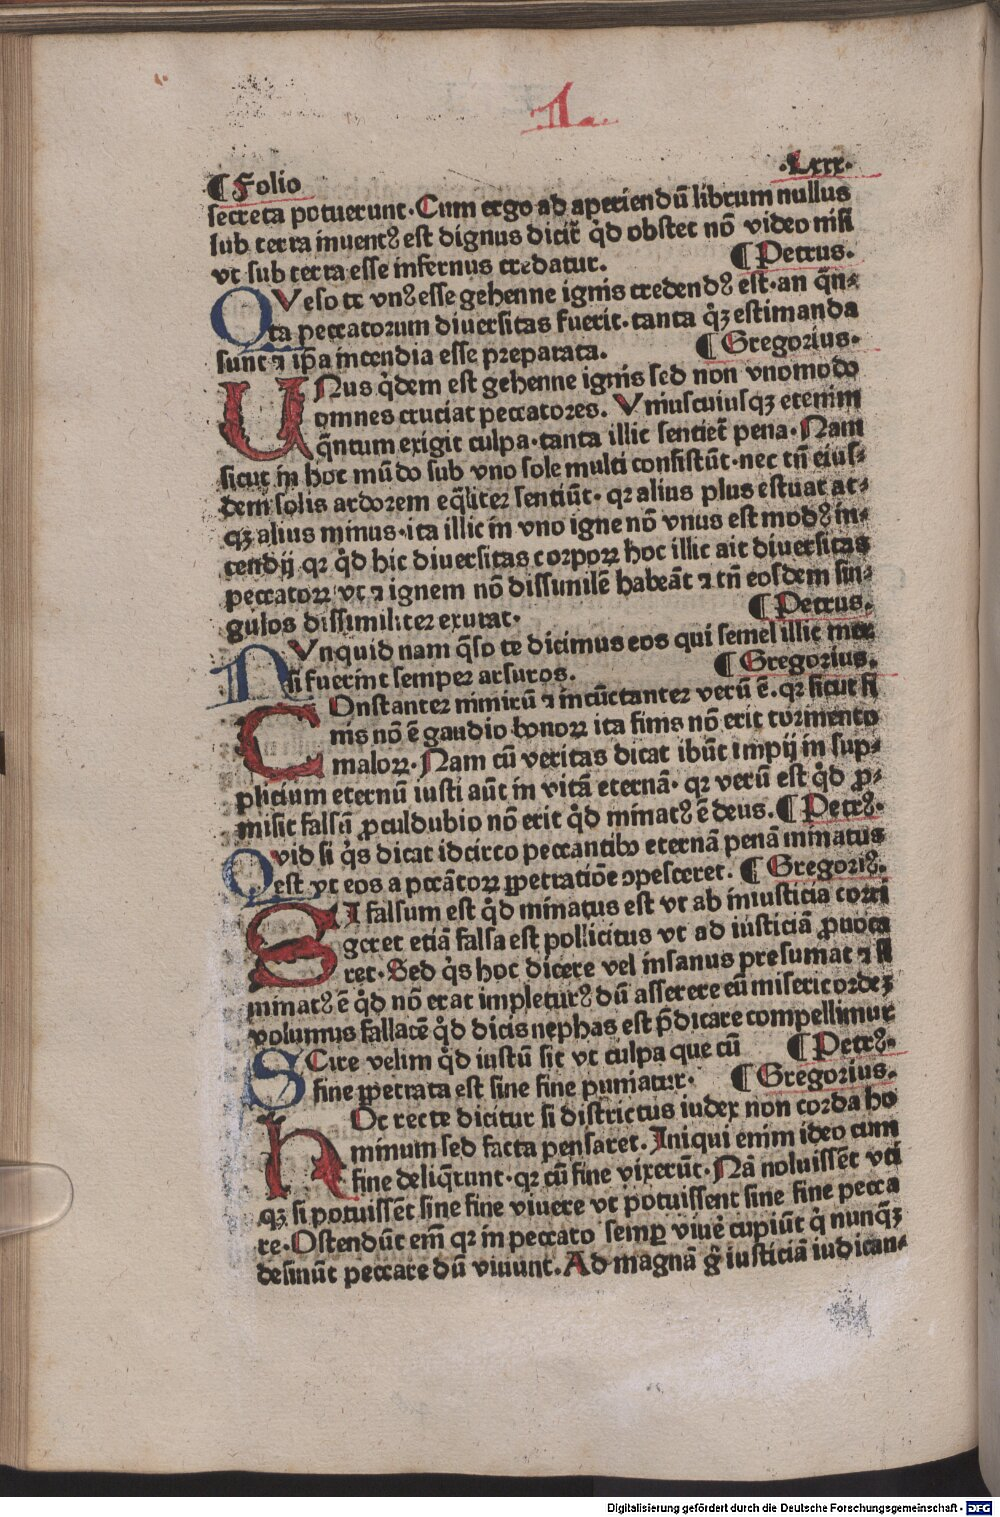 1a.
¶ Folio .Lxxx.
secreta potuerunt. Cum ergo ad aperiendū librum nullus
sub terra inuentꝰ est dignus dicit̃ qd̓ obstet nō video nisi
vt sub terra esse infernus credatur. ¶ Petrus.
QVeso te vnꝰ esse gehenne ignis credendꝰ est. an q̄n⸗
ta peccatorum diuersitas fuerit. tanta qꝫ estimanda
sunt ⁊ ip̄a incendia esse preparata. ¶ Gregorius.
UNus qd̓em est gehenne ignis sed non vnomodo
omnes cruciat peccatores. Vniuscuiusqꝫ etenim
q̄ntum exigit culpa. tanta illic sentiet̃ pena. Nam
sicut in hoc mūdo sub vno sole multi consistūt. nec tñ eius⸗
dem solis ardorem eq̄liter sentiūt. qꝛ alius plus estuat at⸗
qꝫ alius minus. ita illic in vno igne nō vnus est modꝰ in⸗
cendij qꝛ qd̓ hic diuersitas corpoꝝ hoc illic ait diuersitas
peccatoꝝ vt ⁊ ignem nō dissimilē habeāt ⁊ tñ eosdem sin⸗
gulos dissimiliter exurat. ¶ Petrus.
NVnquid nam q̄so te dicimus eos qui semel illic mer
si fuerint semper arsuros. ¶ Gregorius.
COnstanter nimirū ⁊ incūctanter verū ē. qꝛ sicut fi
nis nō ē gaudio bonoꝝ ita finis nō erit tormento
maloꝝ. Nam cū veritas dicat ibūt impij in sup⸗
plicium eternū iusti aūt in vitā eternā. qꝛ verū est qd̓ ꝓ⸗
misit falsū ꝓculdubio nō erit qd̓ minatꝰ ē deus. ¶ Petrꝰ.
QVid si q̓s dicat idcirco peccantibꝰ eternā penā minatus
est vt eos a pctōꝝ ꝑpetratiōe ↄpesceret. ¶ Gregoriꝰ.
SI falsum est qd̓ minatus est vt ab iniusticia corri
geret etiā falsa est pollicitus vt ad iusticiā ꝓuoca
ret. Sed q̓s hoc dicere vel insanus presumat ⁊ si
minatꝰ ē qd̓ nō erat impleturꝰ dū asserere eū misericordeꝫ
volumus fallacē qd̓ dictu nephas est p̄dicare compellimur
SCire velim qd̓ iustū sit vt culpa que cū ¶ Petrꝰ.
fine ꝑpetrata est sine fine puniatur. ¶ Gregorius.
HOc recte dicitur si districtus iudex non corda ho
minum sed facta pensaret. Iniqui enim ideo cum
fine deliq̄runt. qꝛ cū fine vixerūt. Nā noluissēt vti
qꝫ si potuissēt sine fine viuere vt potuissent sine fine pecca
re. Ostendūt em̄ qꝛ in peccato semꝑ viuē cupiūt q̓ nunq̄ꝫ
desinūt peccare dū viuunt. Ad magnā g̊ iusticiā iudican⸗
Digitalisierung gefördert durch die Deutsche Forschungsgemeinschaft - DFG